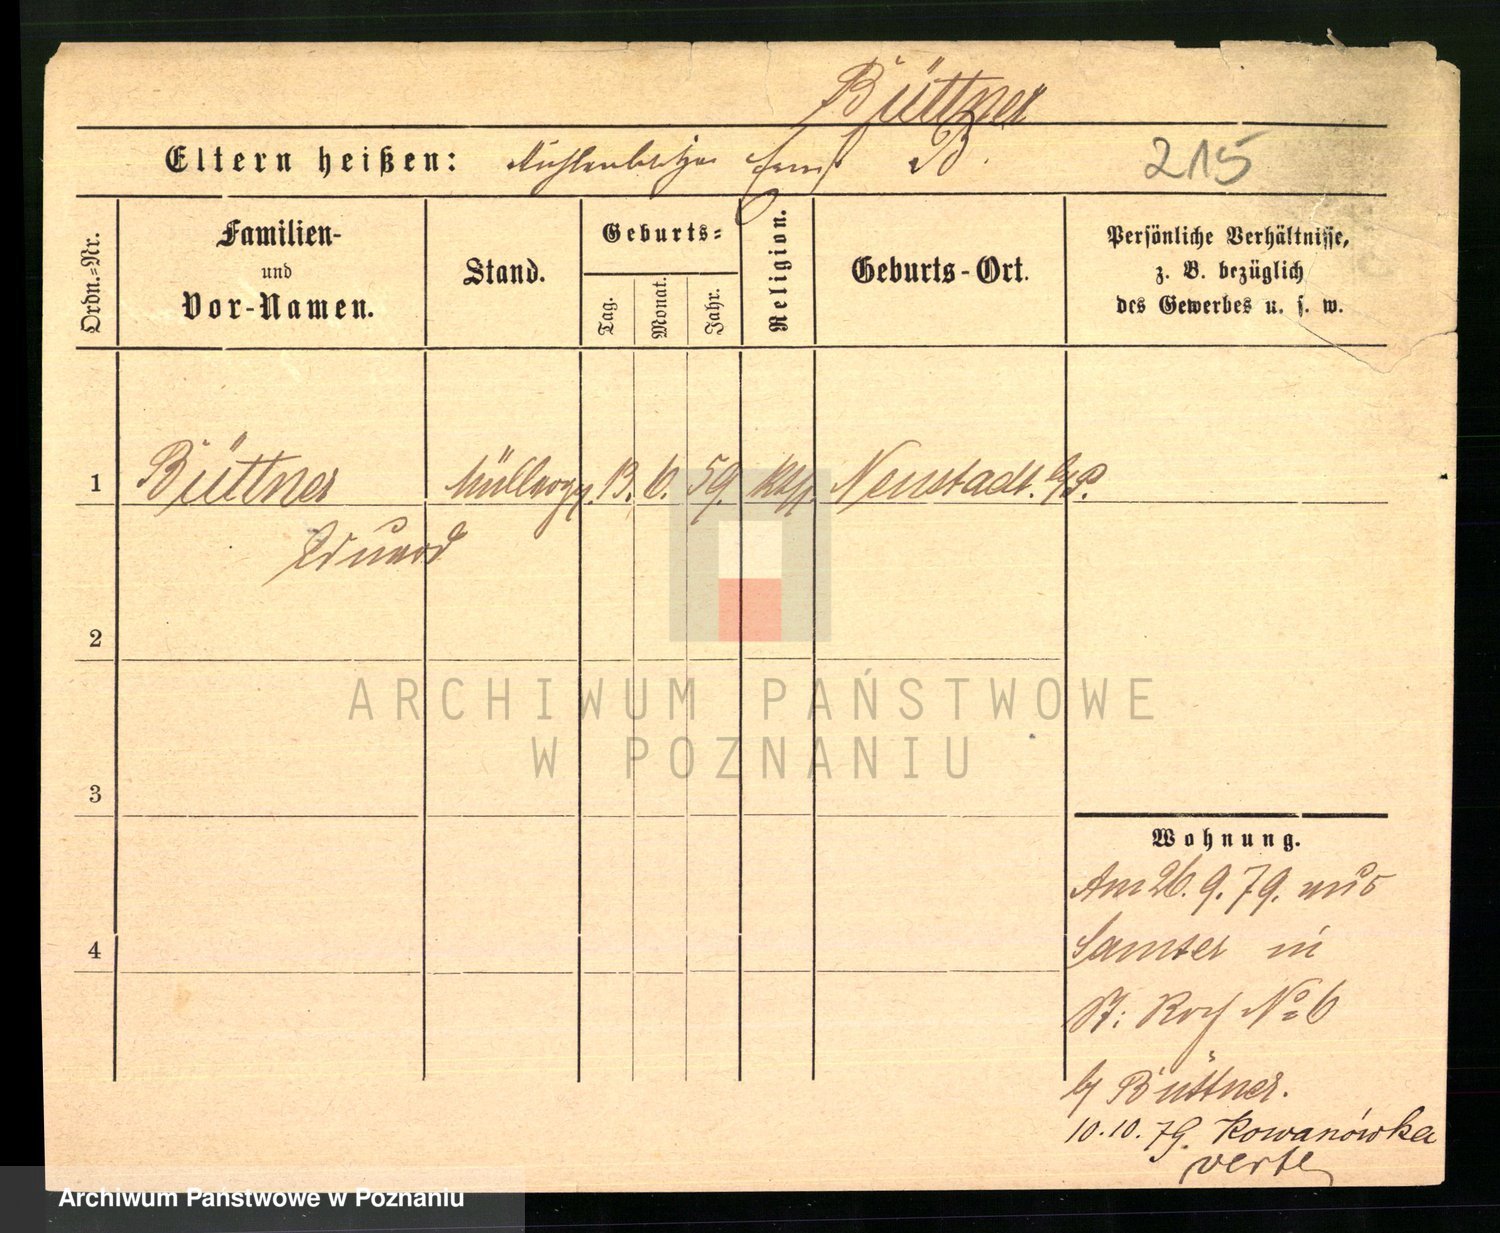 Büttner
Eltern heißen: Mühlenbesitzer Ernst B.
215
Ordn.=Nr.
Familien-
und
Vor-Namen.
Stand.
Geburts=
Tag.
Monat.
Jahr.
Religion.
Geburts-Ort.
Persönliche Verhältnisse,
z. B. bezüglich
des Gewerbes u. s. w.
1 Büttner Müllerg. 13. 6. 59. kth. Neustadt. b/P.
Eduard
2
3
4
Wohnung.
Am 26. 9. 79. aus
Samter in
St: Roch No 6
by Büttner.
10.10.79. Kowanówka
verte
ARCHIWUM PAŃSTWOWE
W POZNANIU
Archiwum Państwowe w Poznaniu